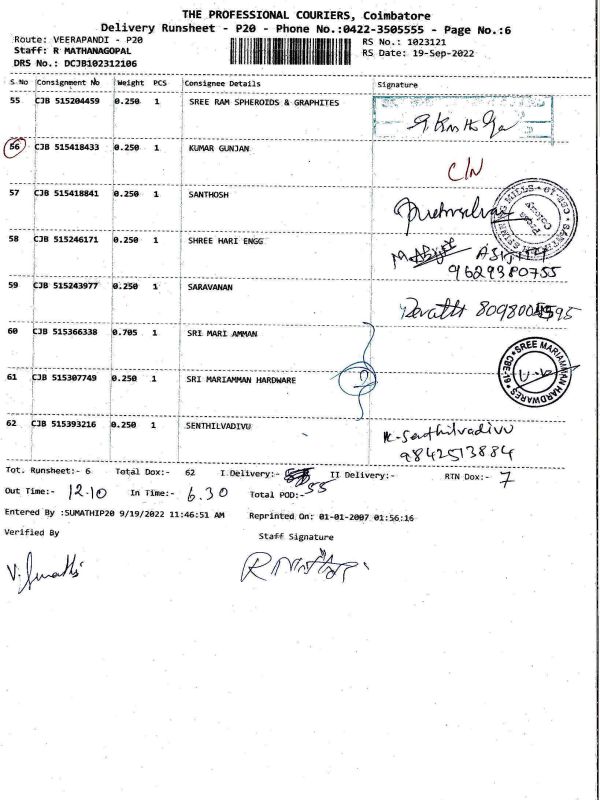 THE PROFESSIONAL COURIERS, Coimbatore
Delivery Runsheet - P20 - Phone No.:0422-3505555 - Page No.:6
Route: VEERAPANDI - P20 RS No.: 1023121
Staff: R MATHANAGOPAL RS Date: 19-Sep-2022
DRS No.: DCJB102312106
S No Consignment No Weight PCS Consignee Details Signature
55 CJB 515204459 0.250 1 SREE RAM SPHEROIDS & GRAPHITES
56 CJB 515418433 0.250 1 KUMAR GUNJAN C/N
57 CJB 515418841 0.250 1 SANTHOSH
58 CJB 515246171 0.250 1 SHREE HARI ENGG
9629380755
59 CJB 515243977 0.250 1 SARAVANAN
60 CJB 515366338 0.705 1 SRI MARI AMMAN
61 CJB 515307749 0.250 1 SRI MARIAMMAN HARDWARE
SREE MARIAMMAN HARDWARES CBE-19
62 CJB 515393216 0.250 1 SENTHILVADIVU K-Senthilvadivu
9842513884
Tot. Runsheet:- 6 Total Dox:- 62 I Delivery:- II Delivery:- RTN Dox:- 7
Out Time:- 12.10 In Time:- 6.30 Total POD:- 55
Entered By :SUMATHIP20 9/19/2022 11:46:51 AM Reprinted On: 01-01-2007 01:56:16
Verified By Staff Signature